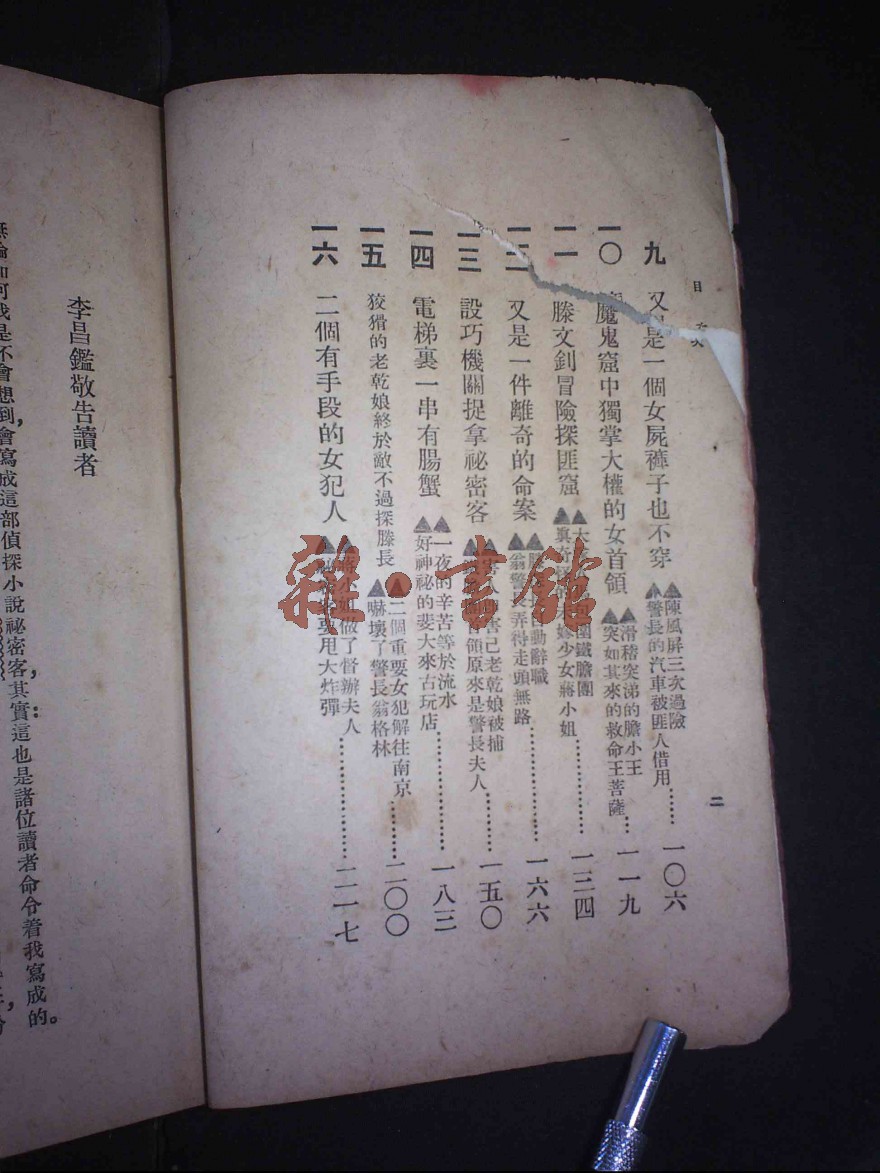 目次
九 又是一個女屍褲子也不穿
▲陳風屏三次過險
▲警長的汽車被匪人借用……一〇六
一〇 魔鬼窟中獨掌大權的女首領
▲滑稽突涕的膽小王
▲突如其來的救命王菩薩…一一九
一一 滕文釗冒險探匪窟
圍鐵膽團
嫁少女蔣小姐…………一三四
一二 又是一件離奇的命案
動辭職
▲翁警長弄得走頭無路…………一六六
一三 設巧機關捉拿祕密客
害己老乾娘被捕
首領原來是警長夫人………一五〇
一四 電梯裏一串有腸蟹
▲一夜的辛苦等於流水
▲好神祕的斐大來古玩店…………一八三
一五 狡猾的老乾娘終於敵不過探滕長
▲二個重要女犯解往南京
▲嚇壞了警長翁格林………二〇〇
一六 二個有手段的女犯人
小姐做了督辦夫人
要甩大炸彈…………二一七
二
李昌鑑敬告讀者
無論如何我是不會想到,會寫成這部偵探小說祕密客,其實這也是諸位讀者命令着我寫成的。
雜·書館